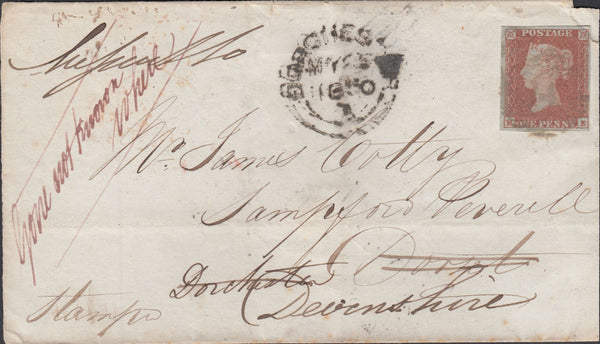 POSTAGE
ONE PENNY
DORCHESTER
MY 23
1850
Gone not known
where
Mr. James Cotty
Sampford Peverell
Dorset
Dorchester
Devonshire
Stamps